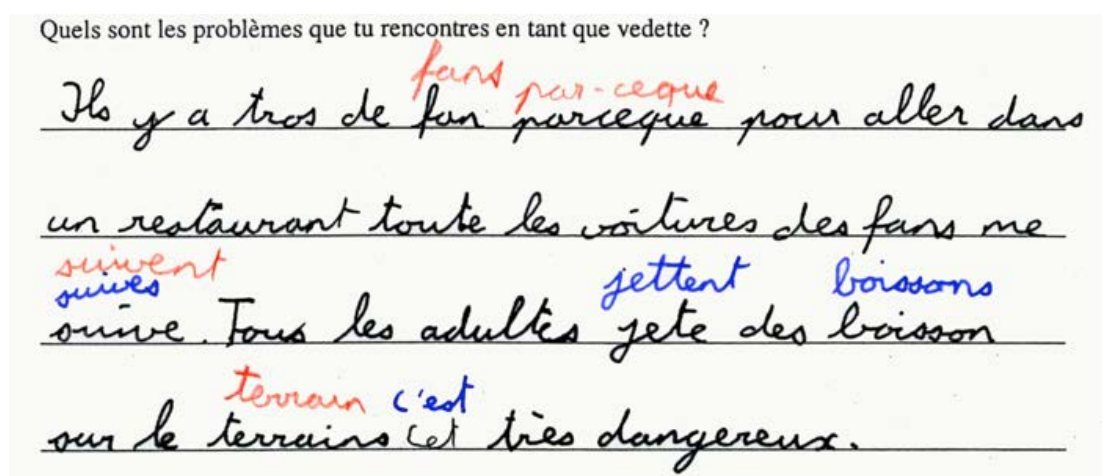 Quels sont les problèmes que tu rencontres en tant que vedette ?
fans par-ceque
Ils y a tros de fan parceque pour aller dans
un restaurant toute les voitures des fans me
suivent
suives jettent boissons
suive. Tous les adultes jete des boisson
terrain c'est
sur le terrains cet très dangereux.